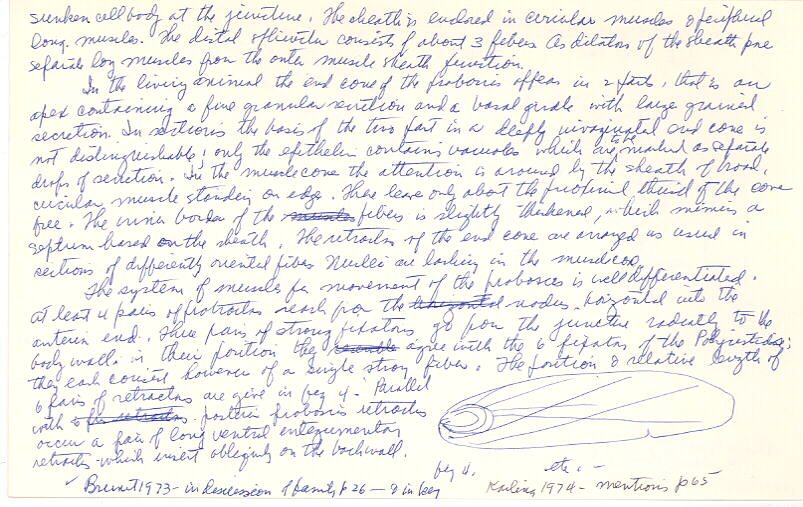 sunken cell body at the juncture. The sheath is enclosed in circular muscles & peripheral
long. muscles. The distal sphincter consists of about 3 fibers. As dilators of the sheath
separate long muscles from the outer muscle sheath function.
In the living animal the end cone of the proboscis appears in 2 parts, that is an
apex containing a fine granular secretion and a basal girdle with large grained
secretion. In sections the basis of the two part in a deeply invaginated end cone is
not distinguishable; only the epithelium contains vacuoles which are to be marked as separate
drops of secretion. In the muscle cone the attention is aroused by the sheath of broad,
circular muscle standing on edge. These leave only about the proximal third of the cone
free. The inner border of the fibers is slightly thickened, which mimics a
septum based on the sheath. The retractors of the end cone are arranged as usual in
sections of differently oriented fibers. Nuclei are lacking in the
The system of muscles for movement of the proboscis is well differentiated.
At least 4 pairs of protractors reach from the nodus horizontal into the
anterior end. Three pairs of strong fixators go from the juncture radially to the
body wall. in their position they agree with the 6 fixators of the Polycystididae;
they each consist however of a single strong fiber. The position & relative length of
6 pairs of retractors are give in fig 4. Parallel
with posterior proboscis retractors
occur a pair of long ventral integumentary
retractors which insert obliquely on the backwall.
fig 4. etc. -
✓ Brunet 1973 - in discussion of family p 26 - & in key
Karling 1974 - mentions p 65